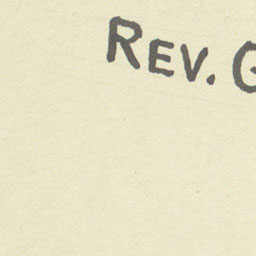 REV. G